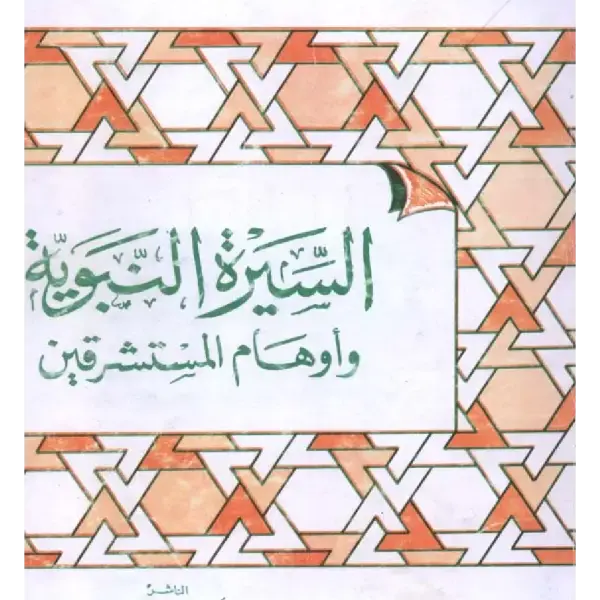 السِّيَرة النَّبَويَّة
وأوهام المستشرقين
الناشر